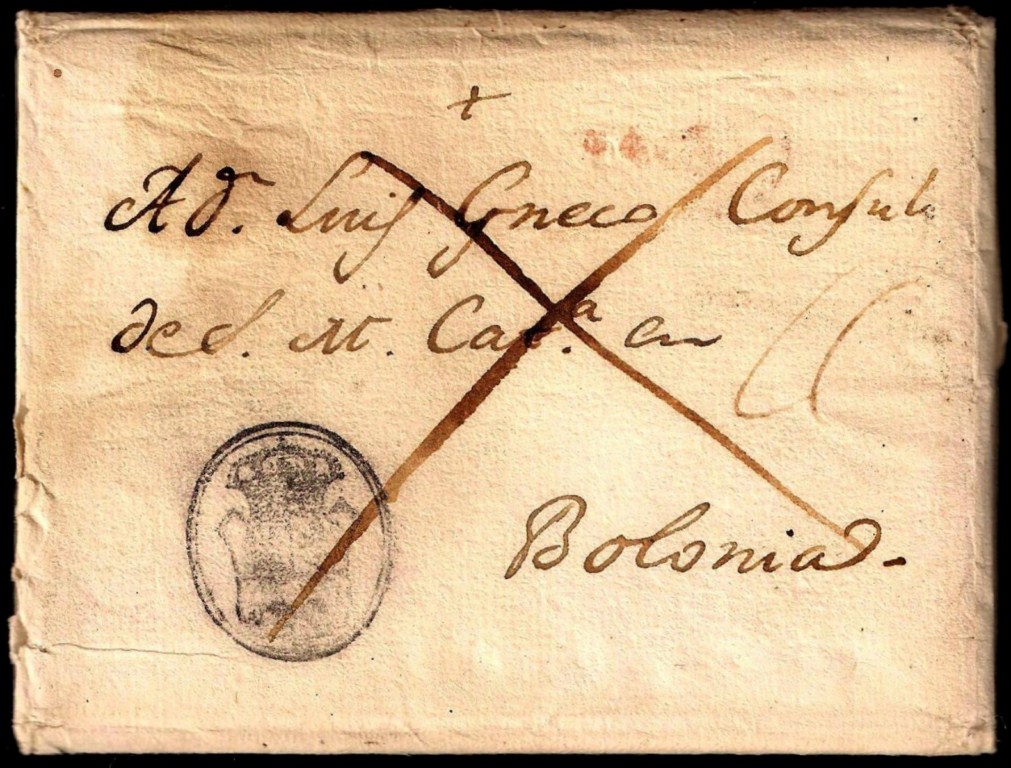 +
A dⁿ. Luis Gneco Consul
de S. M. Catᵃ. en
Bolonia.